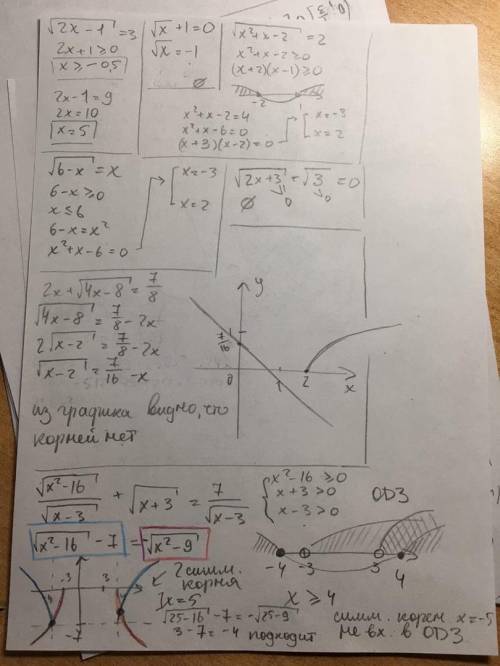 √2x-1 = 3
2x+1≥0
x≥-0,5
2x-1=9
2x=10
x=5
√x +1=0
√x = -1
∅
√x²+x-2 = 2
x²+x-2≥0
(x+2)(x-1)≥0
-2 1
x²+x-2=4
x²+x-6=0
(x+3)(x-2)=0
x=-3
x=2
√6-x = x
6-x≥0
x≤6
6-x=x²
x²+x-6=0
x=-3
x=2
√2x+3 + √3 = 0
∅ 0 0
2x+√4x-8 = 7/8
√4x-8 = 7/8 -2x
2√x-2 = 7/8 -2x
√x-2 = 7/16 -x
из графика видно, что
корней нет
y
1
7/16
0 1 2 x
√x²-16/√x-3 + √x+3 = 7/√x-3
x²-16≥0
x+3>0
x-3>0
ОДЗ
√x²-16 -7 = -√x²-9
-4 -3 3 4
x≥4
-3 3
-7
2 симм.
корня
x=5
√25-16 -7 = -√25-9
3-7=-4 подходит
симм. корень x=-5
не вх. в ОДЗ